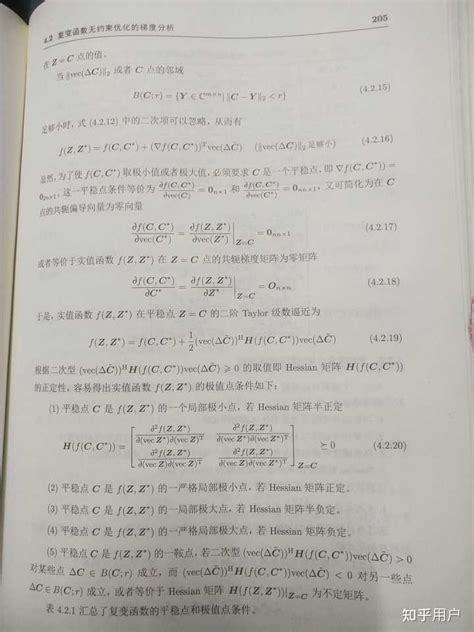 4.2 复变函数无约束优化的梯度分析 205
在 Z = C 点的值。
当 ‖vec(ΔC)‖₂ 或者 C 点的邻域
B(C; r) = {Y ∈ ℂᵐˣⁿ | ‖C − Y‖₂ < r} (4.2.15)
足够小时，式 (4.2.12) 中的二次项可以忽略，从而有
f(Z, Z*) = f(C, C*) + (∇f(C, C*))ᵀvec(ΔC̃) (‖vec(ΔC)‖₂ 足够小) (4.2.16)
显然，为了使 f(C, C*) 取极小值或者极大值，必须要求 C 是一个平稳点，即 ∇f(C, C*)) =
这一平稳点条件等价为 ∂f(C, C*)/∂vec(C) = 和 ∂f(C, C*)/∂vec(C*) = ，又可简化为在 C
点的共轭偏导向量为零向量
∂f(C, C*)/∂vec(C*) = ∂f(Z, Z*)/∂vec(Z*)|Z=C = 0 (4.2.17)
或者等价于实值函数 f(Z, Z*) 在 Z = C 点的共轭梯度矩阵为零矩阵
∂f(C, C*)/∂C* = ∂f(Z, Z*)/∂Z*|Z=C = O (4.2.18)
于是，实值函数 f(Z, Z*) 在平稳点 Z = C 的二阶 Taylor 级数逼近为
f(Z, Z*) = f(C, C*) + 1/2 (vec(ΔC̃))ᴴH(f(C, C*))vec(ΔC̃) (4.2.19)
根据二次型 (vec(ΔC̃))ᴴH(f(C, C*))vec(ΔC̃) ⩾ 0 的取值即 Hessian 矩阵 H(f(C, C*))
的正定性，容易得出实值函数 f(Z, Z*) 的极值点条件如下：
(1) 平稳点 C 是 f(Z, Z*) 的一个局部极小点，若 Hessian 矩阵半正定
H(f(C, C*)) = [∂²f(Z, Z*)/∂(vec Z*)∂(vec Z)ᵀ ∂²f(Z, Z*)/∂(vec Z*)∂(vec Z*)ᵀ
∂²f(Z, Z*)/∂(vec Z)∂(vec Z)ᵀ ∂²f(Z, Z*)/∂(vec Z)∂(vec Z*)ᵀ]Z=C ⪰ 0 (4.2.20)
(2) 平稳点 C 是 f(Z, Z*) 的一严格局部极小点，若 Hessian 矩阵正定。
(3) 平稳点 C 是 f(Z, Z*) 的一局部极大点，若 Hessian 矩阵半负定。
(4) 平稳点 C 是 f(Z, Z*) 的一严格局部极大点，若 Hessian 矩阵负定。
(5) 平稳点 C 是 f(Z, Z*) 的一鞍点，若二次型 (vec(ΔC̃))ᴴH(f(C, C*))vec(ΔC̃) > 0
对某些点 ΔC ∈ B(C; r) 成立，而 (vec(ΔC̃))ᴴH(f(C, C*))vec(ΔC̃) < 0 对另一些点
ΔC ∈ B(C; r) 成立，即 Hessian 矩阵 H(f(Z, Z*))|Z=C 为不定矩阵。
表 4.2.1 汇总了复变函数的平稳点和极值点条件。
知乎用户